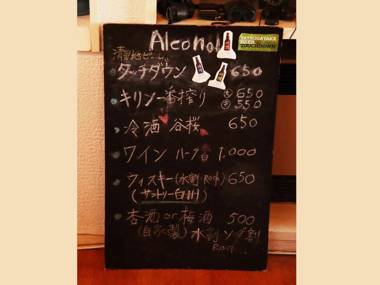 Alcohol
YATSUGATAKE BEER TOUCHDOWN
清里地ビール
タッチダウン 650
キリン一番搾り 大650
小550
冷酒 谷桜 650
ワイン ハーフ 1,000
ウィスキー(水割 Rock) 650
(サントリー白州)
杏酒 or 梅酒 500
(自家製) 水割 ソーダ割
Rock